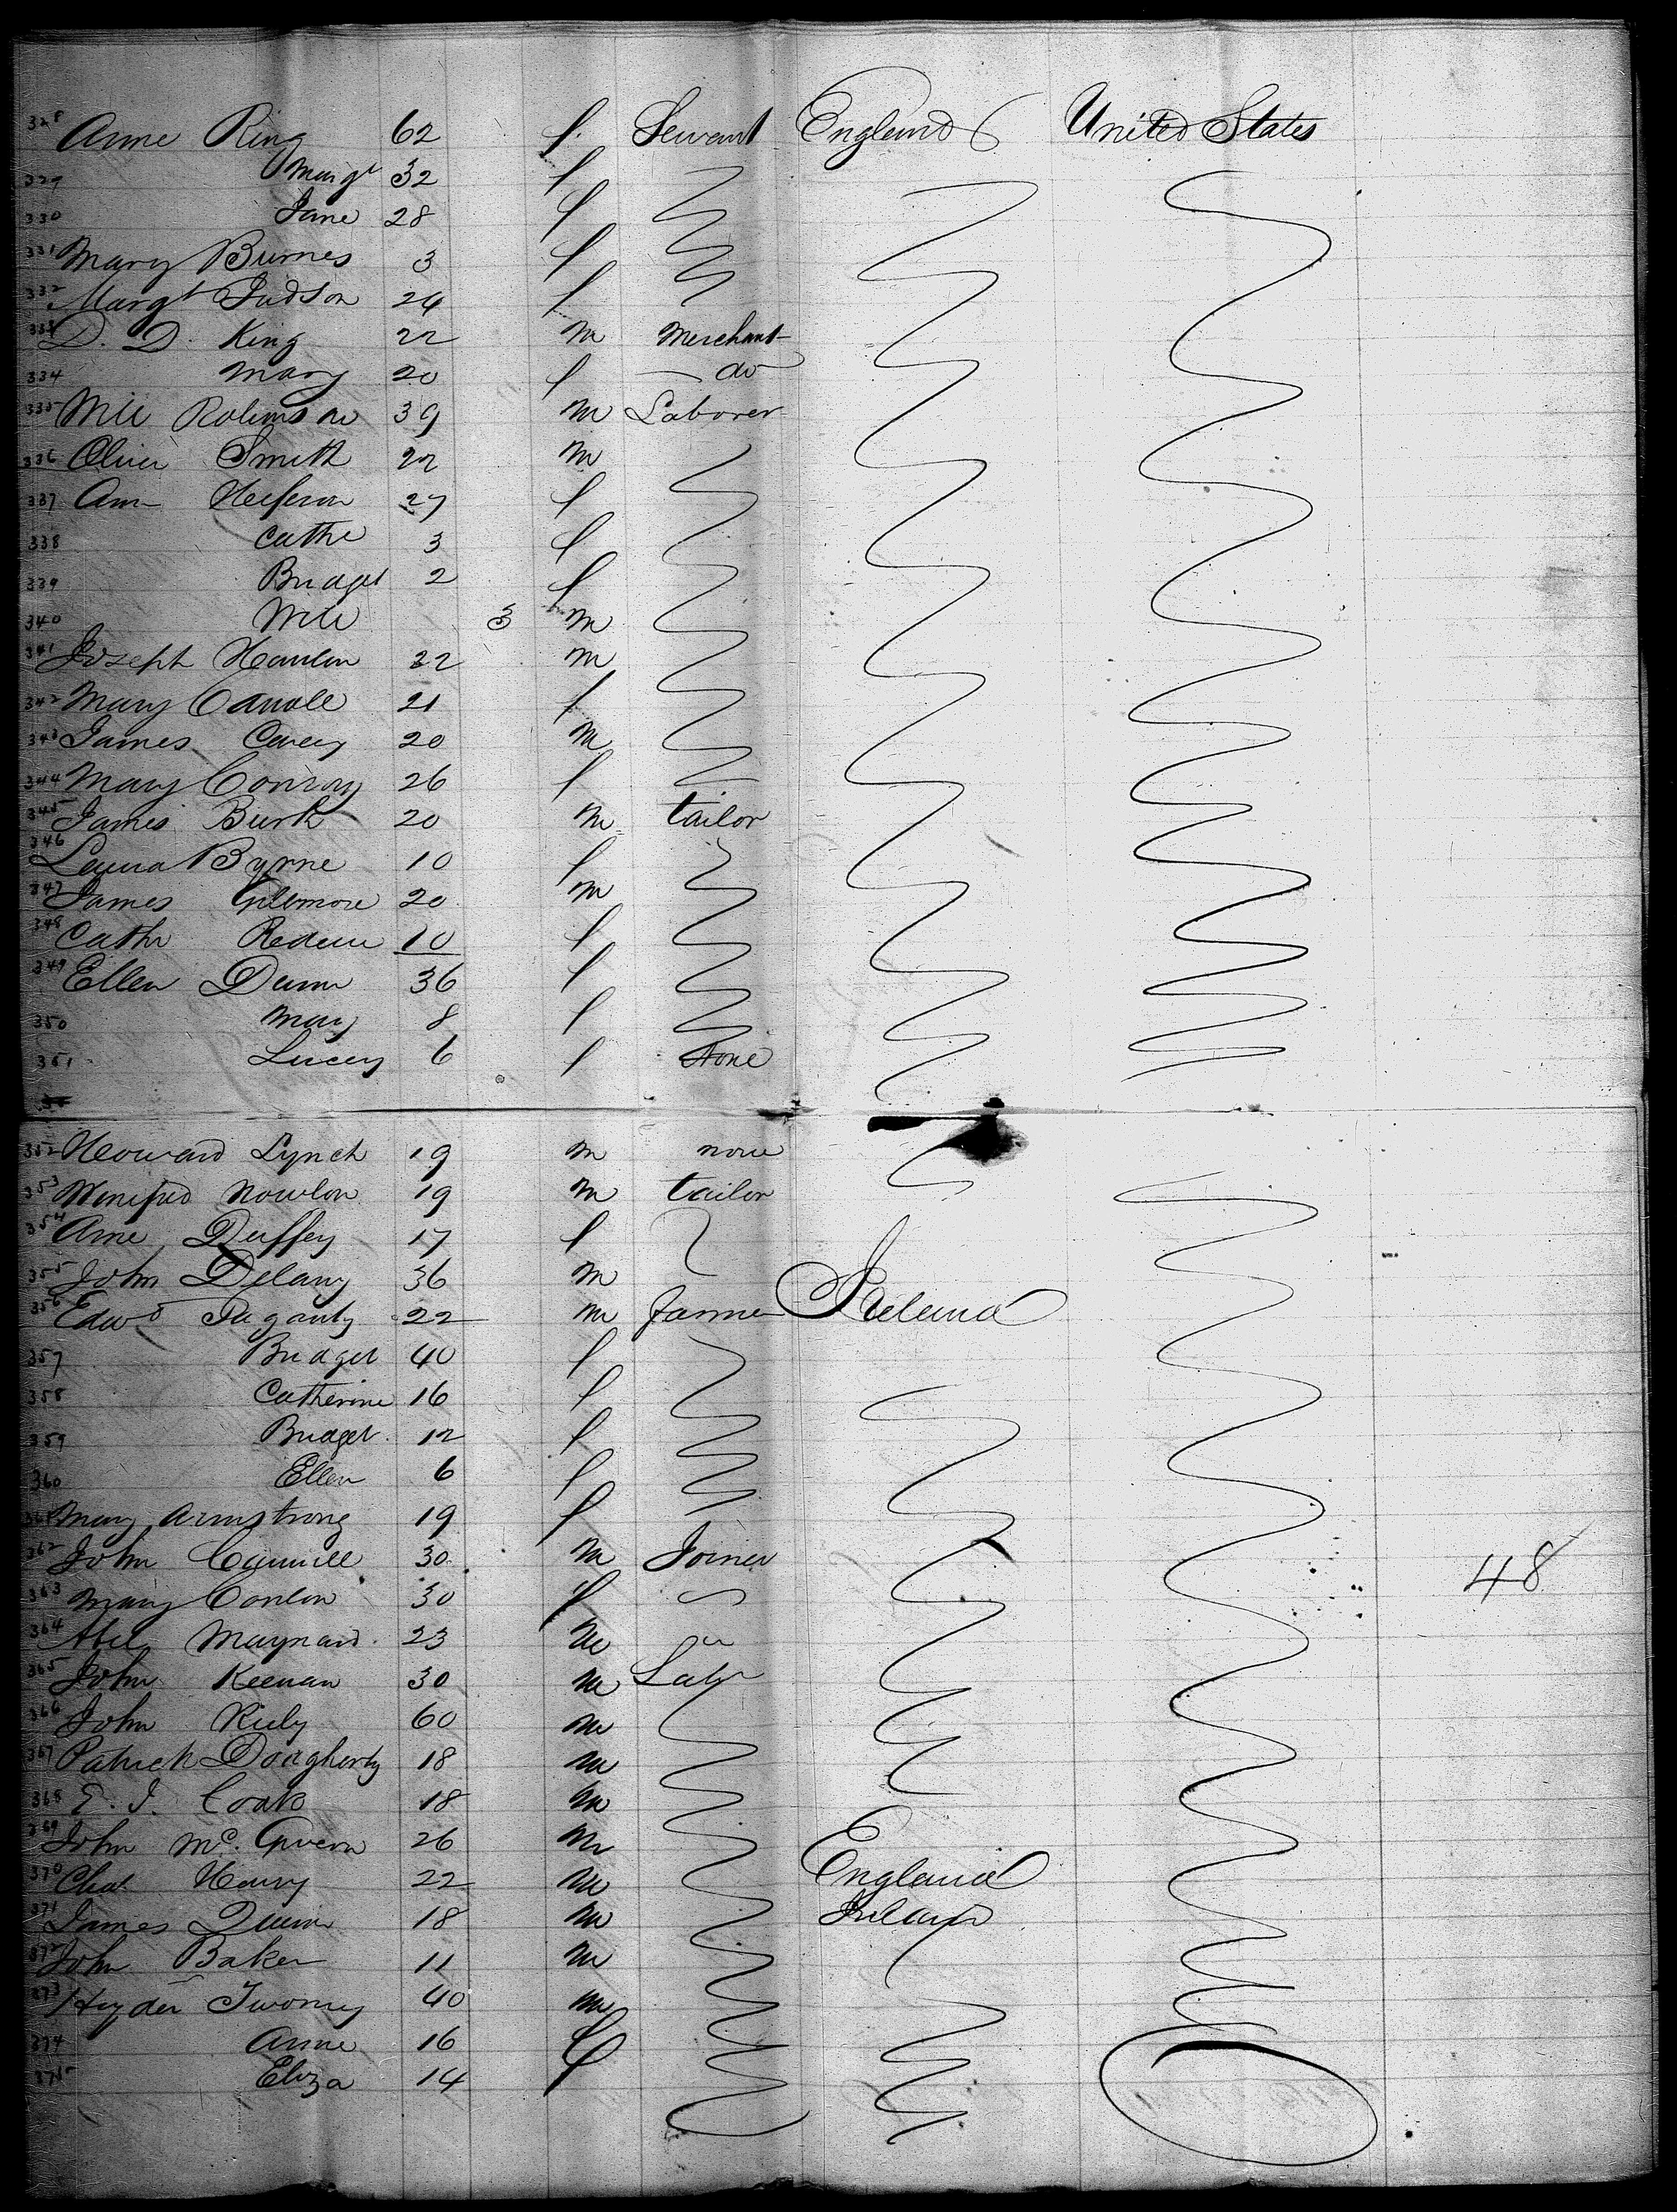 328 Anne Ring 62 f. Servant England United States
329 Margt 32 f
330 Jane 28 f
331 Mary Burnes 3 f
332 Margt Judson 24 f
333 D. D. King 22 m Merchant
334 Mary 20 f do
335 Robinson 39 m Laborer
336 Oliver Smith 22 m
337 Ann 27 f
338 Cathe 3 f
339 Bridget 2 f
340 3 m
341 Joseph Hanlon 22 m
342 Mary Carroll 21 f
343 James Carey 20 m
344 Mary Conroy 26 f
345 James Burk 20 m tailor
346 Laura Byrne 10 f
347 James Gillmore 20 m
348 Cathr 10 f
349 Ellen Dunn 36 f
350 Mary 8 f
351 Lucey 6 f None
352 Howard Lynch 19 m none
353 Winifred Nowlon 19 m tailor
354 Anne Duffey 17 f
355 John Delany 36 m
356 Edwd 22 m farmer Ireland
357 Bridget 40 f
358 Catherine 16 f
359 Bridget 12 f
360 Ellen 6 f
361 Mary Armstrong 19 f
362 John 30 m Joiner
363 Mary Conlon 30 f
48
364 Abel Maynard 23 m
365 John Keenan 30 m Labr
366 John Riely 60 m
367 Patrick Dougherty 18 m
368 E. J. Coak 18 m
369 John Mc. Govern 26 m
370 Chas Henry 22 m England
371 James Quinn 18 m Ireland
372 John Baker 11 m
373 Twomey 40 m
374 Anne 16 f
375 Eliza 14 f